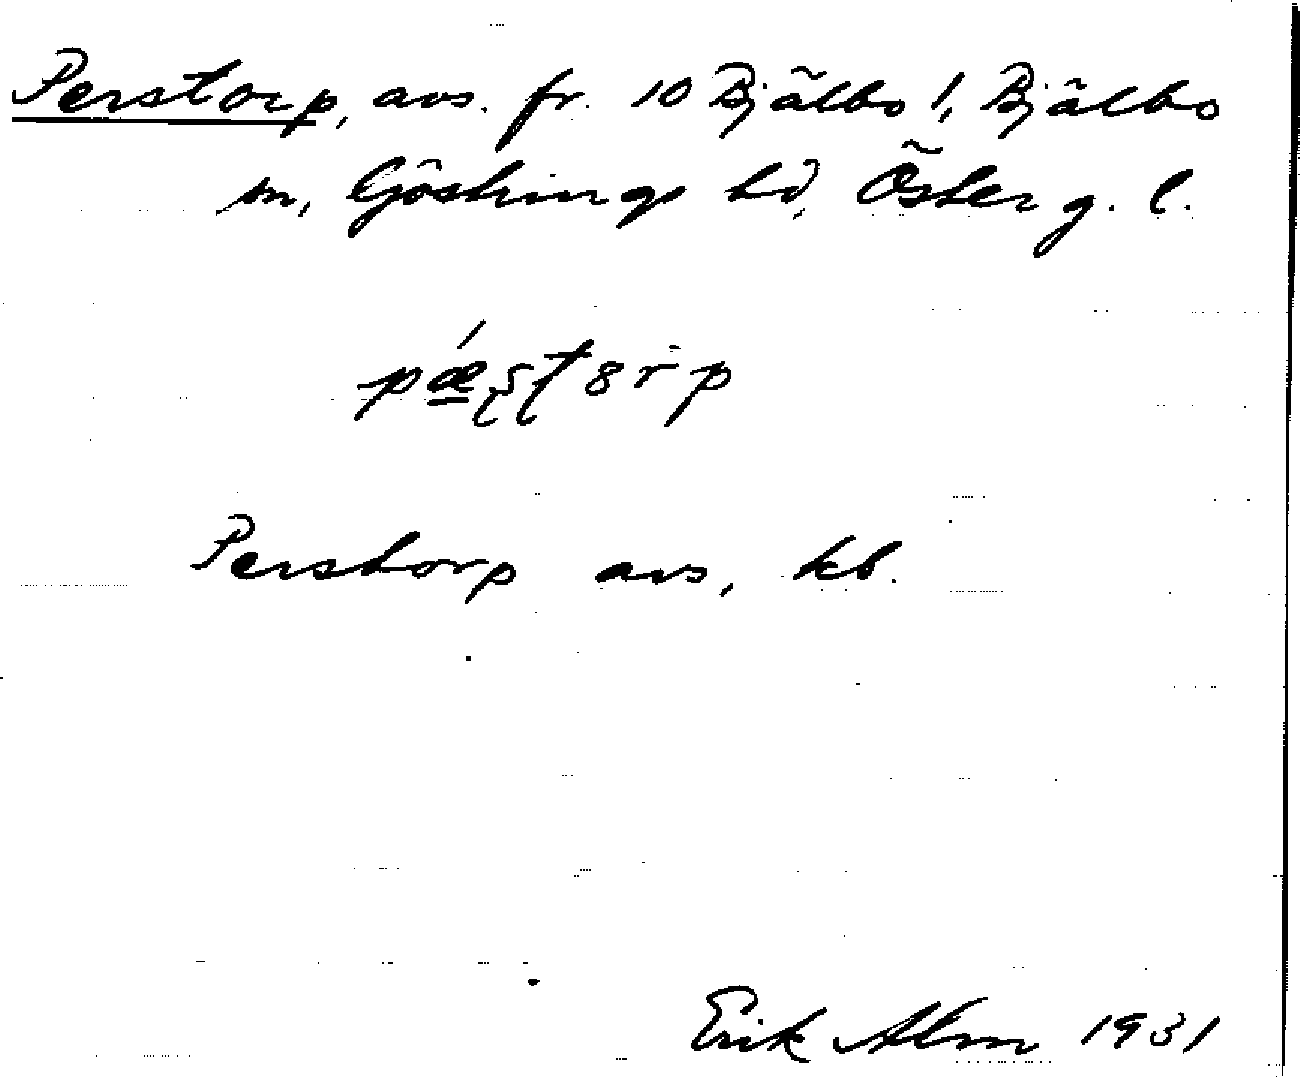 Perstorp, avs. fr. 10 Bjälbo !, Bjälbo
sn, Göstrings hd, Österg. l.
pǽ̲ʂʈ8r̄p
Perstorp avs, kb.
Erik Alm 1931